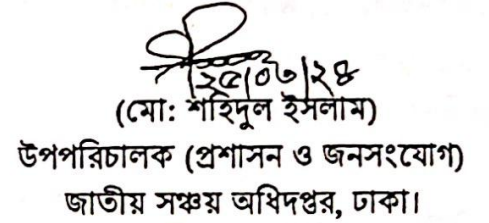 ২৫/০৩/২৪
(মো: শহিদুল ইসলাম)
উপপরিচালক (প্রশাসন ও জনসংযোগ)
জাতীয় সঞ্চয় অধিদপ্তর, ঢাকা।